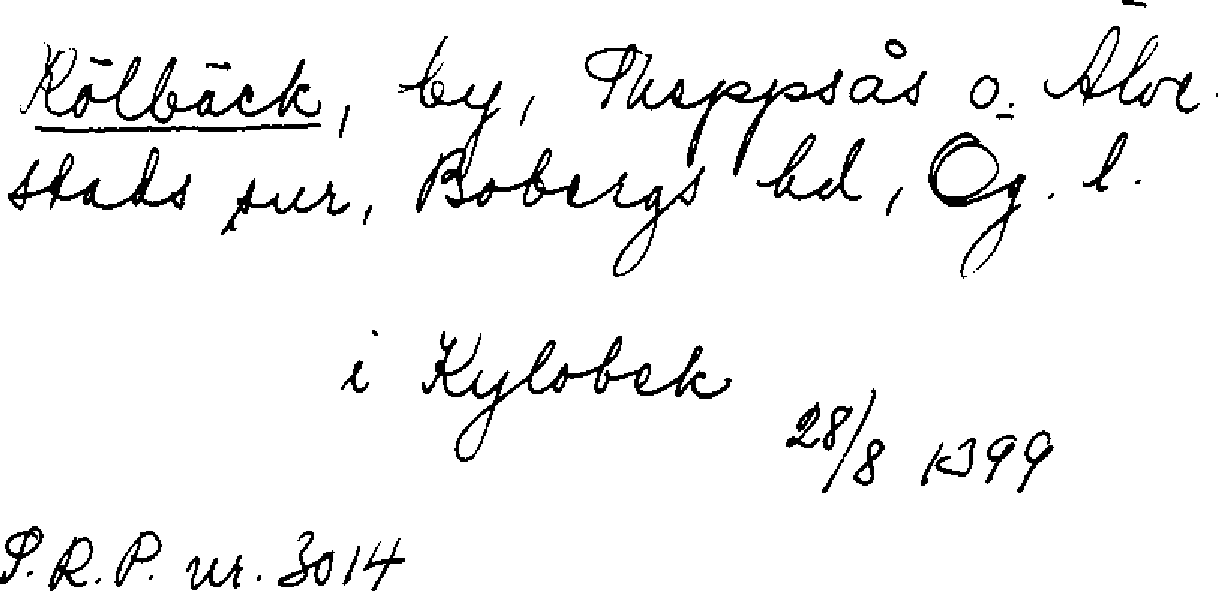 Kölbäck, by, Skeppsås o. Älve-
stads snr, Bobergs hd, Ög. l.
i Kylobek
28/8 1399
S.R.P. nr. 3014